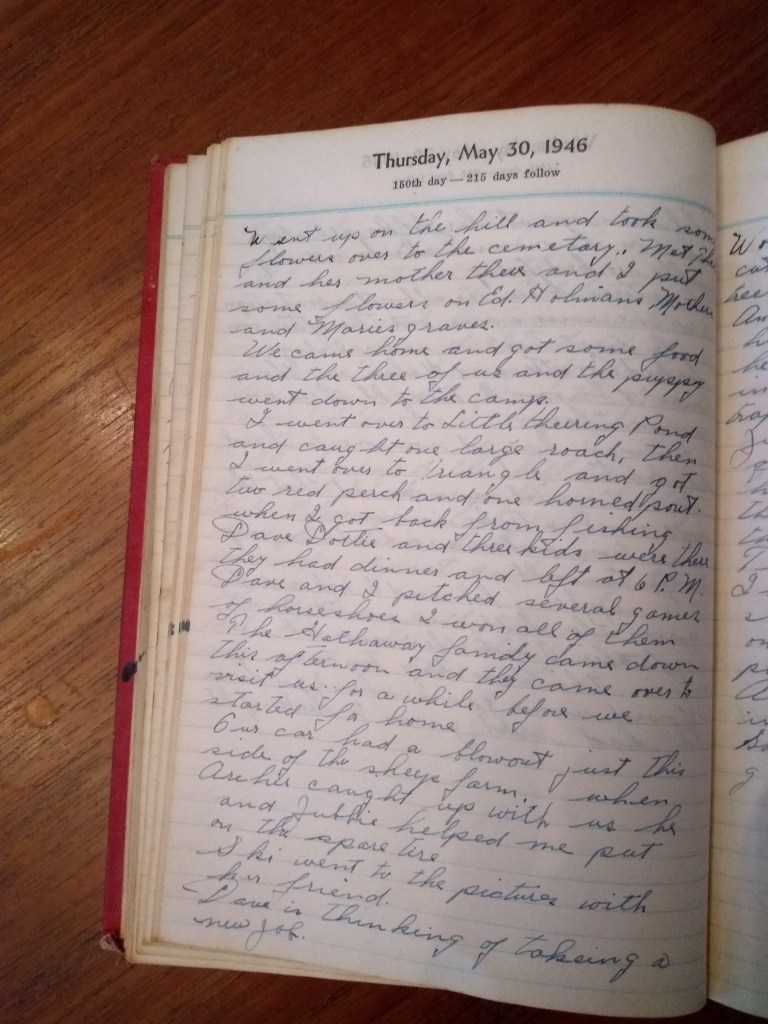 Thursday, May 30, 1946
150th day — 215 days follow
Went up on the hill and took some
flowers over to the cemetary. Met
and her mother there and I put
some flowers on Ed. Holmans Mother
and Maries graves.
We came home and got some food
and the three of us and the puppy
went down to the camp.
I went over to Little Pond
and caught one large roach, then
I went over to Triangle and got
two red perch and one horned pout.
when I got back from fishing
Dave Dottie and three kids were there
they had dinner and left at 6 P.M.
Dave and I pitched several games
of horseshoes I won all of them
The Hathaway family came down
this afternoon and they came over to
visit us for a while before we
started for home
Our car had a blowout just this
side of the sheep farm, when
Archie caught up with us he
and helped me put
on the spare tire
Ski went to the pictures with
her friend.
Dave is thinking of takeing a
new job.